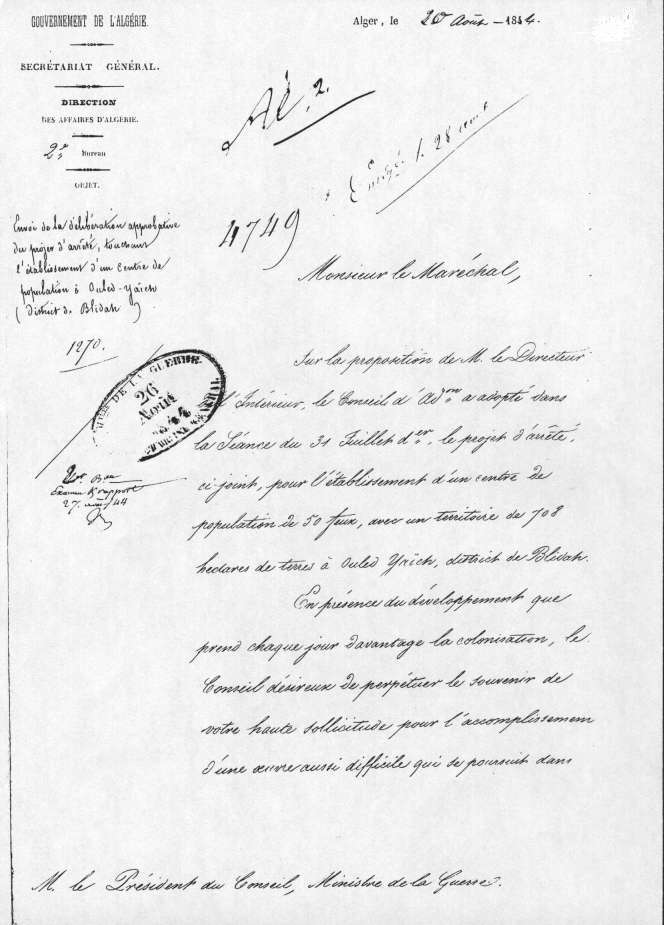 GOUVERNEMENT DE L'ALGÉRIE.
SECRÉTARIAT GÉNÉRAL.
DIRECTION
DES AFFAIRES D'ALGÉRIE.
2e Bureau
OBJET.
Envoi de la délibération approbative
du projet d'arrêté, touchant
l'établissement d'un centre de
population à Ouled-Yaïch
(district de Blidah)
1270.
Alger, le 20 Août - 1844.
2.
28 août
4749
Monsieur le Maréchal,
26
Août
44
Bau
Examen & rapport
27 août 44
Sur la proposition de M. le Directeur
l'Intérieur, le Conseil d'Adon a adopté dans
la Séance du 31 Juillet der, le projet d'arrêté,
ci joint, pour l'établissement d'un centre de
population de 50 feux, avec un territoire de 708
hectares de terres à Ouled Yaïch, district de Blidah.
En présence du développement que
prend chaque jour davantage la colonisation, le
Conseil désireux de perpétuer le souvenir de
votre haute sollicitude pour l'accomplissement
d'une œuvre aussi difficile qui se poursuit dans
M. le Président du Conseil, Ministre de la Guerre.